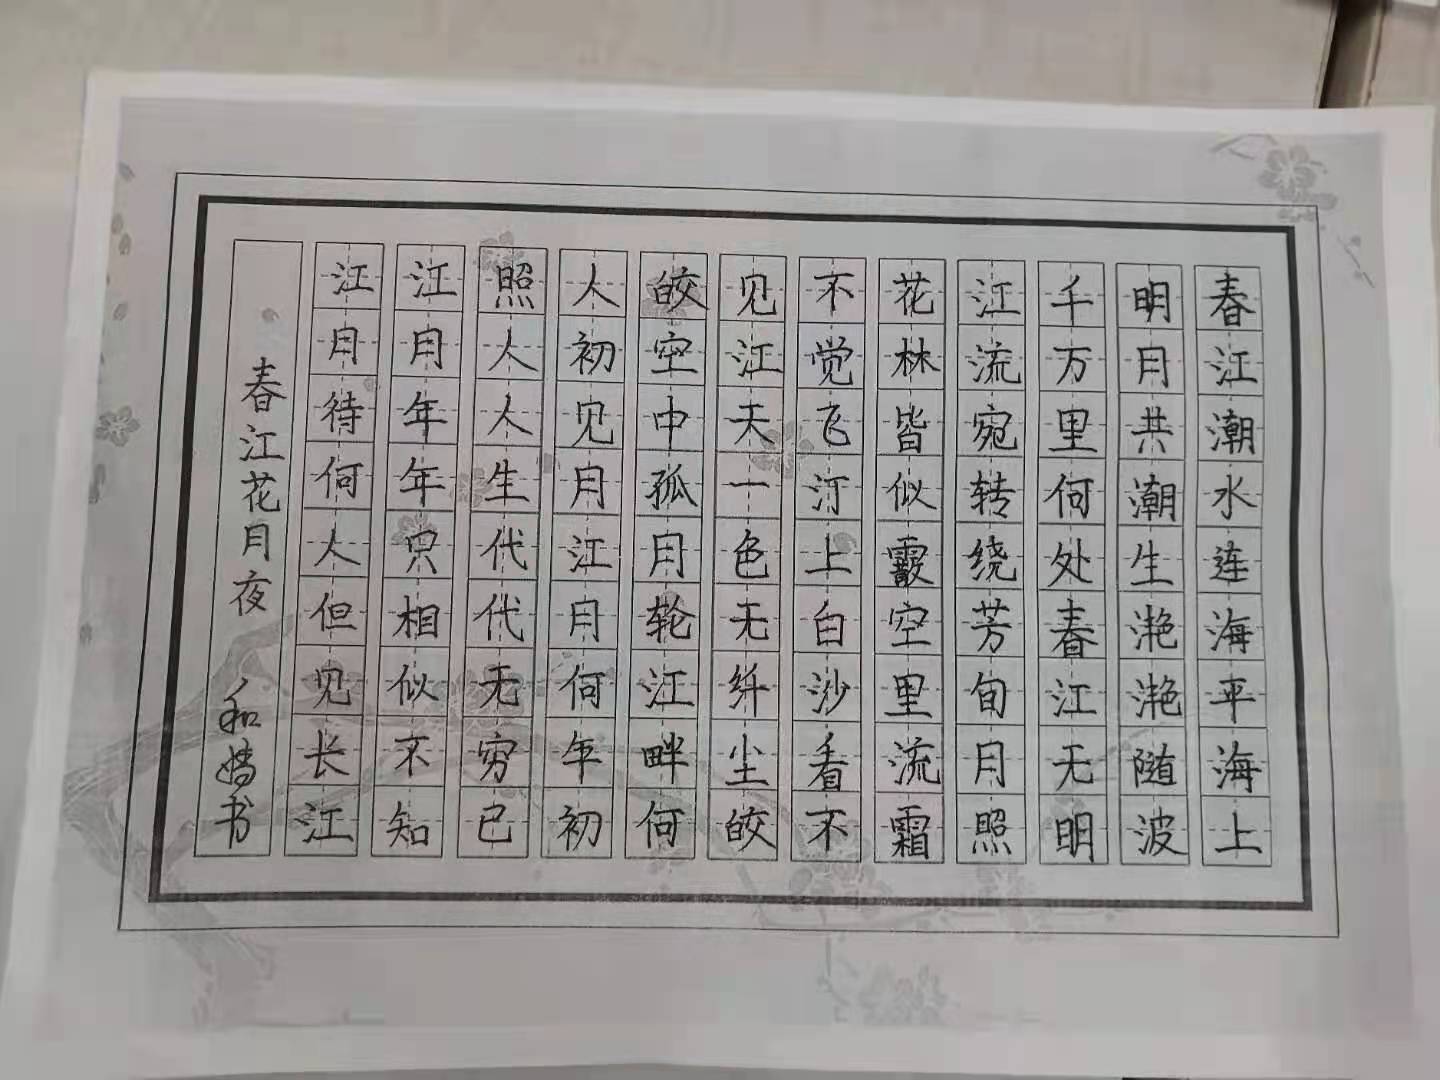 春江潮水连海平海上
明月共潮生滟滟随波
千万里何处春江无明
江流宛转绕芳旬月照
花林皆似霰空里流霜
不觉飞汀上白沙看不
见江天一色无纤尘皎
皎空中孤月轮江畔何
人初见月江月何年初
照人人生代代无穷已
江月年年只相似不知
江月待何人但见长江
春江花月夜 书